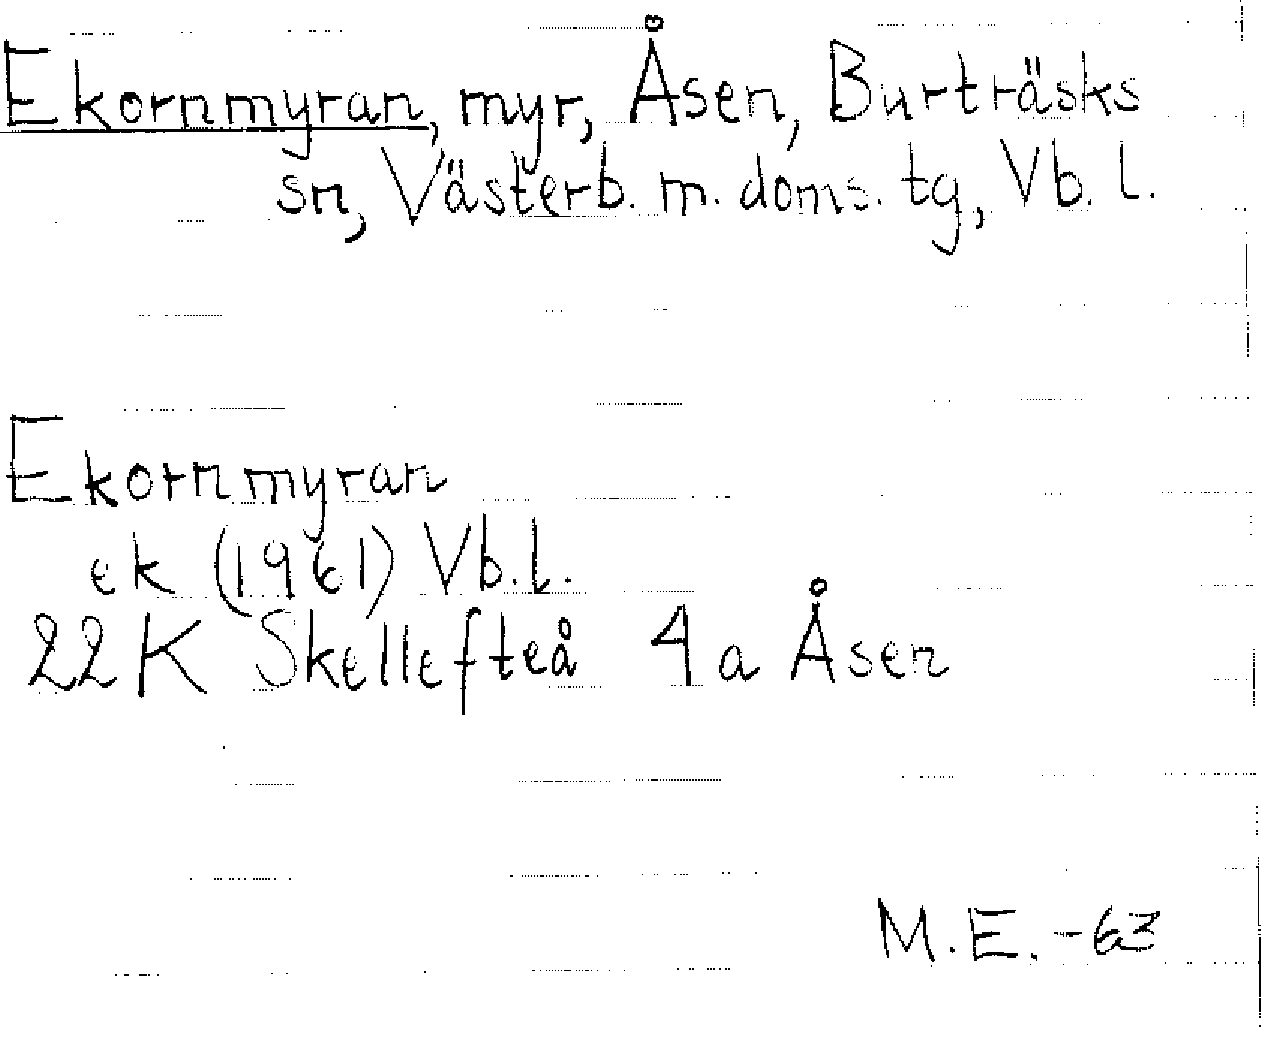 Ekornmyran, myr, Åsen, Burträsks
sn, Västerb. m. doms. tg, Vb. l.
Ekornmyran
ek (1961) Vb.l.
22K Skellefteå 4a Åsen
M.E.-63